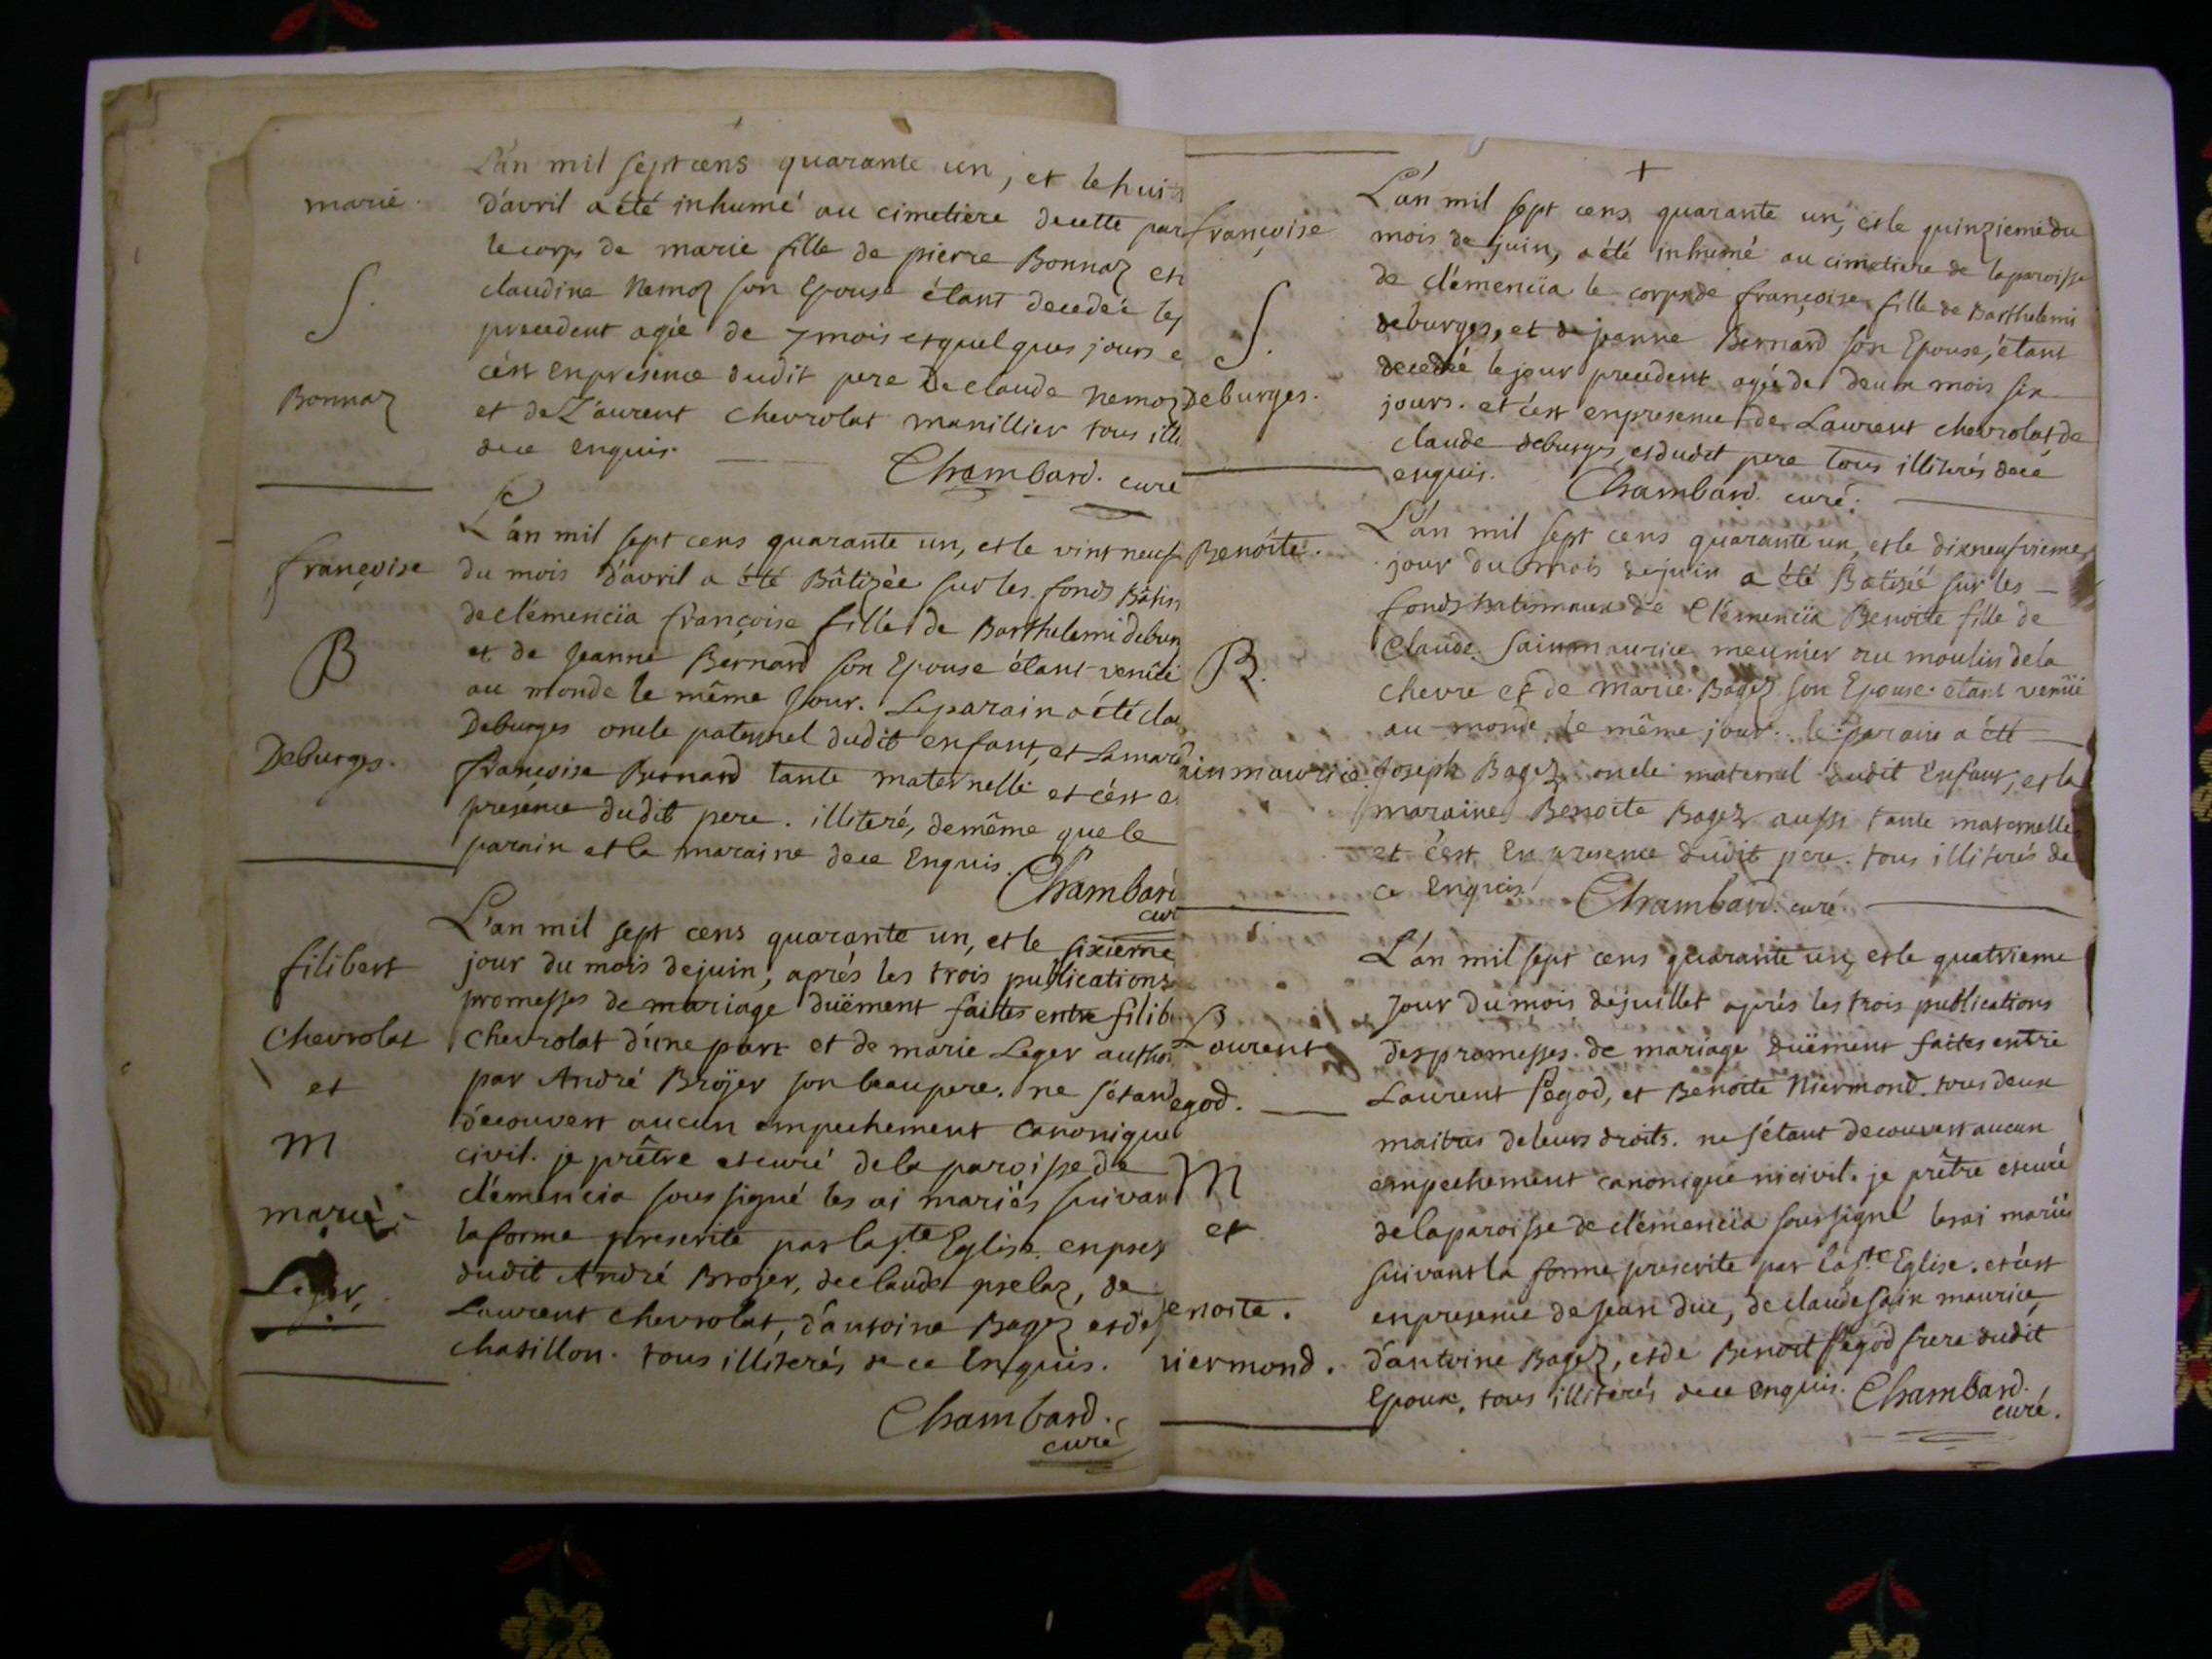 L'an mil sept cens quarante un, et le huit
marie.
d'avril a été inhumé au cimetiere de cette par
le corps de marie fille de pierre Bonnaz et
S.
claudine Nemoz son Epouse étant decedée le
precedent agée de 7 mois et quelques jours e
c'est en presence dudit pere De claude nemoz
Bonnaz
et de Laurent chevrolat manillier tous illi
de ce enquis.
Chambard. curé
L'an mil sept cens quarante un, et le vint neuf
françoise
du mois d'avril a été Bâtizée sur les fonds Bâtis
de clémencïa françoise fille de Barthelemi debur
B
et de Jeanne Bernard son Epouse étant venüe
au monde le même jour. Le parain a été cla
Deburges.
Deburges oncle paternel dudit enfant, et la mara
françoise Bernard tante maternelle et c'est e
presence dudit pere. illiteré, de même que le
parain et la maraine de ce Enquis.
Chambard
cur
L'an mil sept cens quarante un, et le sixieme
filibert
jour du mois de juin, aprés les trois publications
promesses de mariage düement faites entre filib
chevrolat
chevrolat d'une part et de marie Leger author
et
par André Broÿer son beaupere. ne s'étant
decouvert aucun empechement canonique
M
civil. je prêtre et curé de la paroisse de
clémencia soussigné les ai mariés suivant
marie
la forme prescrite par la Ste Eglise. en pres
Leger,
dudit André Broÿer, de claude prelaz, de
Laurent chevrolat, d'antoine Bagez et de
chatillon. tous illiterés de ce Enquis.
Chambard.
curé
+
L'an mil sept cens quarante un, et le quinzieme du
françoise
mois de juin, a été inhumé au cimetiere de la paroisse
de clémencïa le corps de françoise fille de Barthelemi
S.
deburges, et de jeanne Bernard son Epouse, étant
decedée le jour precedent agée de deux mois six
Deburges.
jours. et c'est en presence de Laurent chevrolat de
claude deburges, et dudit pere tous illiterés de ce
enquis.
Chambard. curé.
L'an mil sept cens quarante un, et le dixneufvieme
Benoite.
jour du mois de juin a été Batizéé sur les
fonds batismaux de Clémencïa Benoite fille de
B.
Claude Sainmaurice meunier au moulin de la
chevre et de Marie Bagez son Epouse étant venüe
au monde le même jour. le parain a été
inmaurice.
Joseph Bagez oncle maternel dudit Enfant, et la
maraine Benoite Bagez aussi tante maternelle
et c'est En presence dudit pere. tous illiterés de
ce Enquis.
Chambard. curé
L'an mil sept cens quarante un, et le quatrieme
Jour du mois de juillet aprés les trois publications
Laurent
des promesses de mariage düement faites entre
egod.
Laurent Pegod, et Benoite Niermond. tous deux
maitres de leurs droits. ne s'étant decouvert aucun
M
empechement canonique ni civil. je prêtre et curé
et
de la paroisse de clémencïa soussigné les ai mariés
suivant la forme prescrite par la Ste Eglise. et c'est
enoite.
en presence de Jean Duc, de claude Sain maurice,
niermond.
d'antoine Bagez, et de Benoit Pegod frere dudit
Epoux, tous illiterés de ce enquis.
Chambard.
curé.